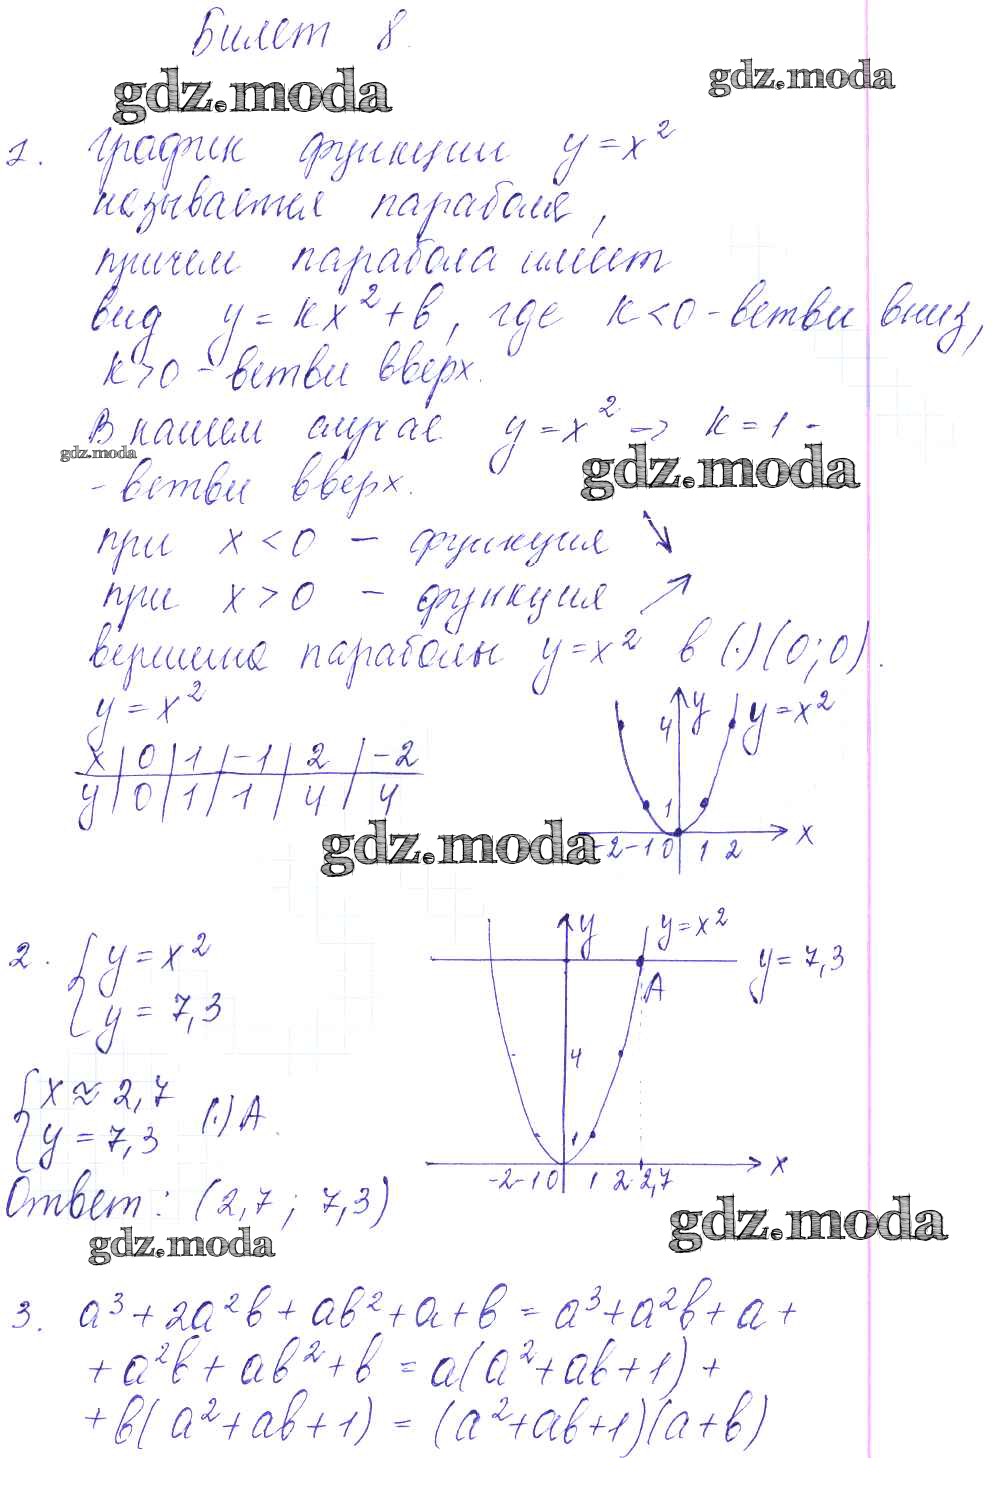 Билет 8.
gdz.moda
gdz.moda
1. График функции y=x²
называется парабола,
причем парабола имеет
вид y=kx²+b, где k<0 - ветви вниз,
k>0 - ветви вверх.
В нашем случае y=x² → k=1 -
gdz.moda
gdz.moda
- ветви вверх.
при x<0 - функция ↘
при x>0 - функция ↗
вершина параболы y=x² в (·)(0;0).
y=x²
x | 0 | 1 | -1 | 2 | -2
y | 0 | 1 | 1 | 4 | 4
y
y=x²
4
1
x
-2 -1 0 1 2
gdz.moda
2. { y=x²
y=7,3
y
y=x²
y=7,3
A
4
1
x
-2 -1 0 1 2 2,7
{ x≈2,7
y=7,3 (·)A.
Ответ: (2,7; 7,3)
gdz.moda
gdz.moda
3. a³+2a²b+ab²+a+b = a³+a²b+a+
+a²b+ab²+b = a(a²+ab+1)+
+b(a²+ab+1) = (a²+ab+1)(a+b)